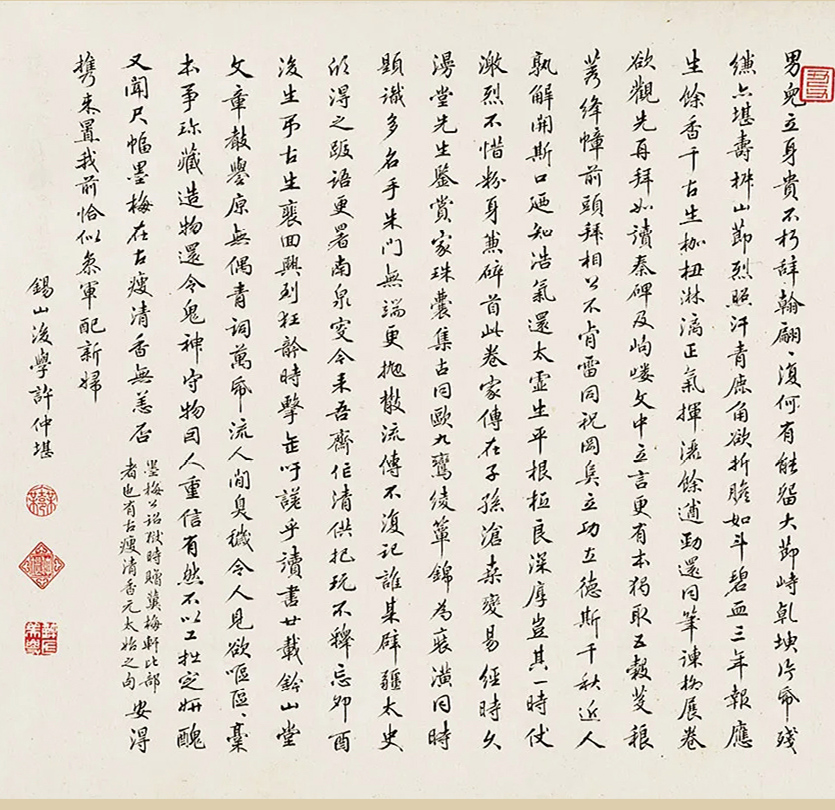 男兒立身貴不朽辭翰翩翩復何有能留大節峙乾坤片帋殘
縑亦堪壽椒山節烈照汗青鹿角欲折膽如斗碧血三年報應
生餘香千古生枷杻淋漓正氣揮灑餘遒勁還同筆諫柳展卷
欲觀先再拜如讀秦碑及岣嶁文中立言更有本獨取五穀芟稂
莠絳幃前頭拜相公不肯雷同祝岡矣立功立德斯千秋近人
孰解開斯口廼知浩氣還太虛生平根柢良深厚豈其一時仗
激烈不惜粉身兼碎首此卷家傳在子孫滄桒變易經時久
漫堂先生鑒賞家珠囊集古同歐九鸞綾簟錦為裝潢同時
題識多名手朱門無端更拋散流傳不復記誰某辟疆太史
欣得之跋語更署南泉叟今来吾齋作清供把玩不鞸忘卯酉
後生弔古生裵回興到狂歌時擊缶吁嗟乎讀書廿載鈐山堂
文章聲譽原無偶青詞萬帋流人間臭穢令人見欲嘔區區槀
本爭珍藏造物還令鬼神守物因人重信有然不以工拙定妍醜
又聞尺幅墨梅在古瘦清香無恙否 墨梅公詔獄時贈冀梅軒比部
者也有古瘦清香元太始之句 安得
携来置我前恰似叅軍配新婦
錫山後學許仲堪